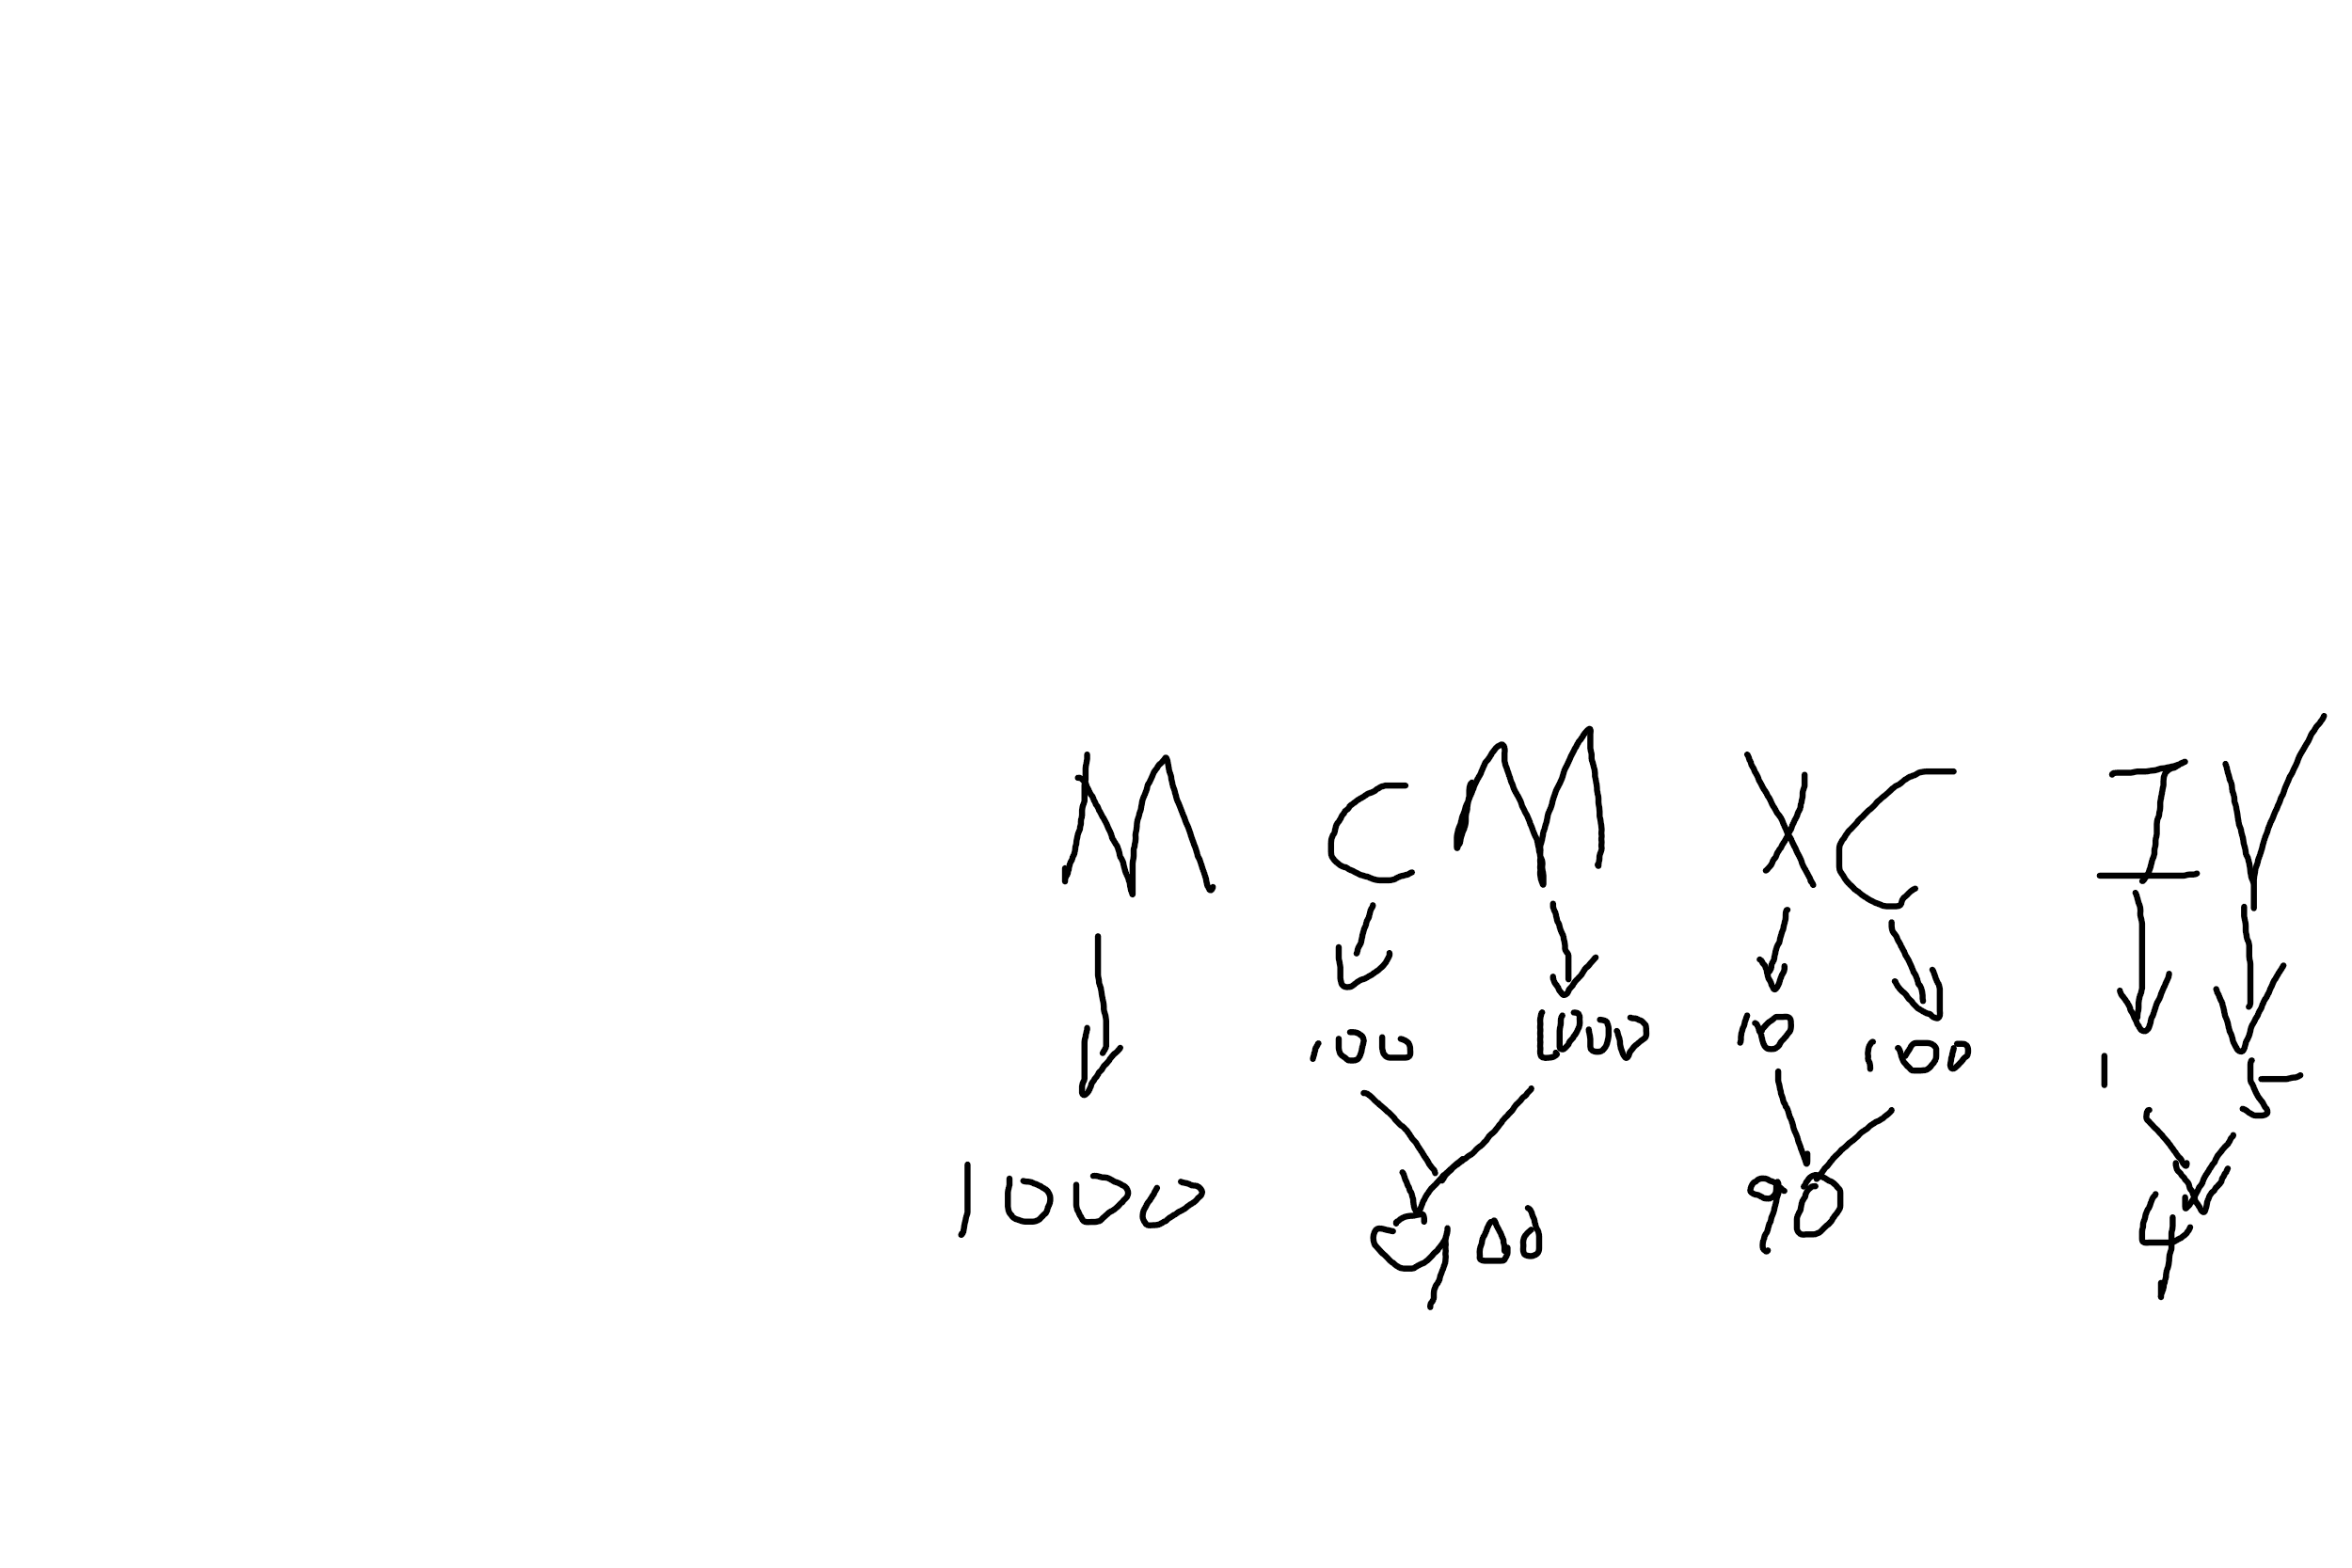 M CM XC IV
100 1000 10 100 1 5
1000 900 90 4